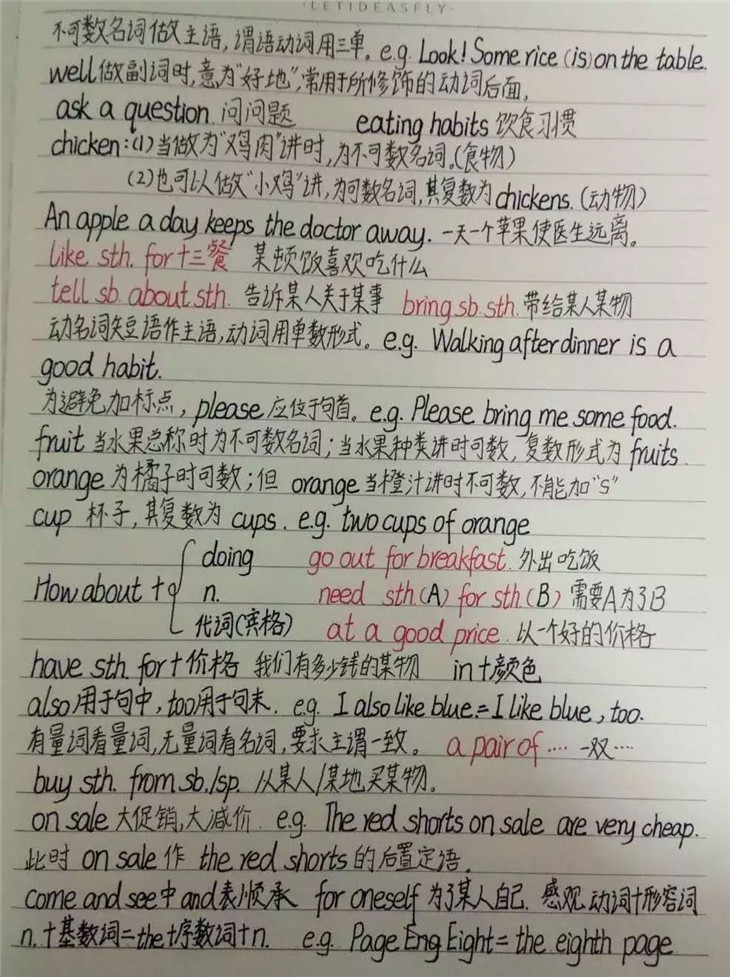 ·LETIDEASFLY·
不可数名词做主语,谓语动词用三单。e.g. Look! Some rice (is) on the table.
well做副词时,意为"好地",常用于所修饰的动词后面。
ask a question 问问题 eating habits 饮食习惯
chicken:(1)当做为"鸡肉"讲时,为不可数名词。(食物)
(2)也可以做"小鸡"讲,为可数名词,其复数为chickens.(动物)
An apple a day keeps the doctor away. 一天一个苹果使医生远离。
like sth. for+三餐 某顿饭喜欢吃什么
tell sb about sth. 告诉某人关于某事 bring sb. sth. 带给某人某物
动名词短语作主语,动词用单数形式。e.g. Walking after dinner is a
good habit.
为避免加标点,please应位于句首。e.g. Please bring me some food.
fruit 当水果总称时为不可数名词;当水果种类讲时可数,复数形式为fruits.
orange为橘子时可数;但 orange当橙汁讲时不可数,不能加"s"
cup 杯子,其复数为 cups. e.g. two cups of orange
doing go out for breakfast. 外出吃饭
How about + n. need sth.(A) for sth.(B) 需要A为了B
代词(宾格) at a good price. 以一个好的价格
have sth. for+价格 我们有多少钱的某物 in+颜色
also用于句中,too用于句末. e.g. I also like blue.=I like blue, too.
有量词看量词,无量词看名词,要求主谓一致。 a pair of ···· 一双····
buy sth. from sb./sp. 从某人/某地买某物。
on sale 大促销,大减价. e.g. The red shorts on sale are very cheap.
此时 on sale 作 the red shorts 的后置定语。
come and see中and表顺承 for oneself 为了某人自己. 感观动词+形容词
n.+基数词=the+序数词+n. e.g. Page Eng Eight = the eighth page